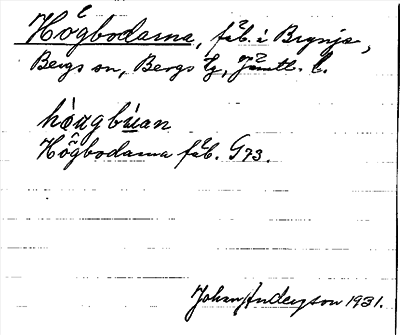 Högbodarna, fäb. i Brynje,
Bergs sn, Bergs tg, Jämtl. l.
hògbúan
Högbodarna fäb. G73.
Johan Anderson 1931.